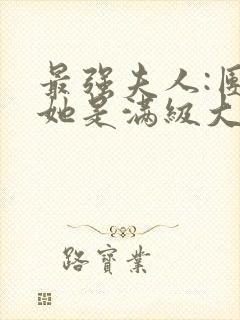 最强夫人:
她是滿級大
路寶業